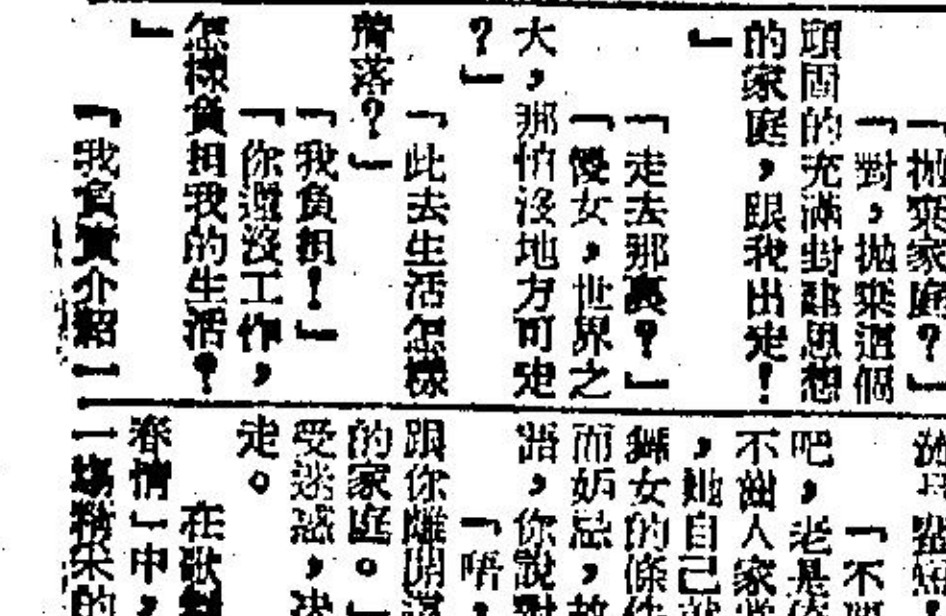 「拋棄家庭？」
「對，拋棄這個
頑固的充滿封建思想
的家庭，跟我出走！
」
「走去那裏？」
「傻女，世界之
大，那怕沒地方可走
？」
「此去生活怎樣
着落？」
「我負担！」
「你還沒工作，
怎樣負担我的生活？
」
「我負責介紹一
「不
吧，老是
不出人家
，她自己就
舞女的條件
而妒忌，故
語，你說對
「唔，
跟你離開這
的家庭。」
受迷惑，决
走。
在歌
春情」中，
一場精采的